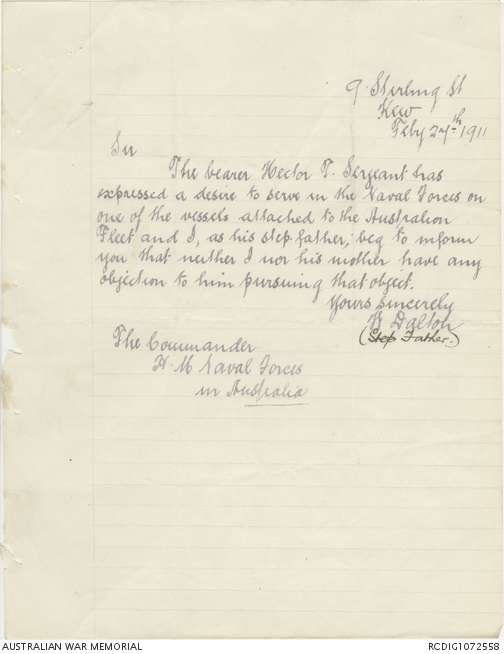 9 Stirling St
Kew
Feby 27th 1911
Sir
The bearer Hector T. Sergeant has
expressed a desire to serve in the Naval Forces on
one of the vessels attached to the Australian
Fleet and I, as his step father, beg to inform
you that neither I nor his mother have any
objection to him pursuing that object.
Yours sincerely
Dalton
(Step Father.)
The Commander
H. M Naval Forces
in Australia
AUSTRALIAN WAR MEMORIAL
RCDIG1072558